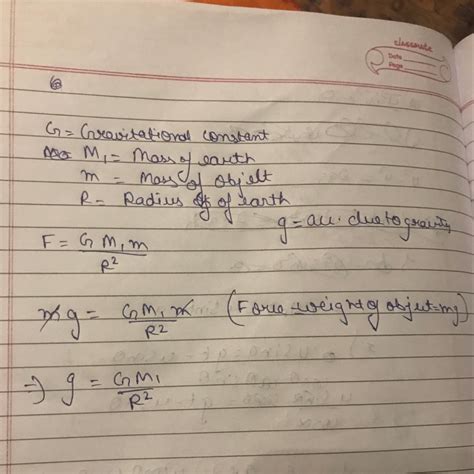 classmate
Date
Page
G = Gravitational constant
M₁ = Mass of earth
m = Mass of Objelt
R = Radius of of earth
g = acc. due to gravity
F = G M₁ m / R²
m g = G M₁ m / R² (Force = weight of object = mg)
⇒ g = G M₁ / R²